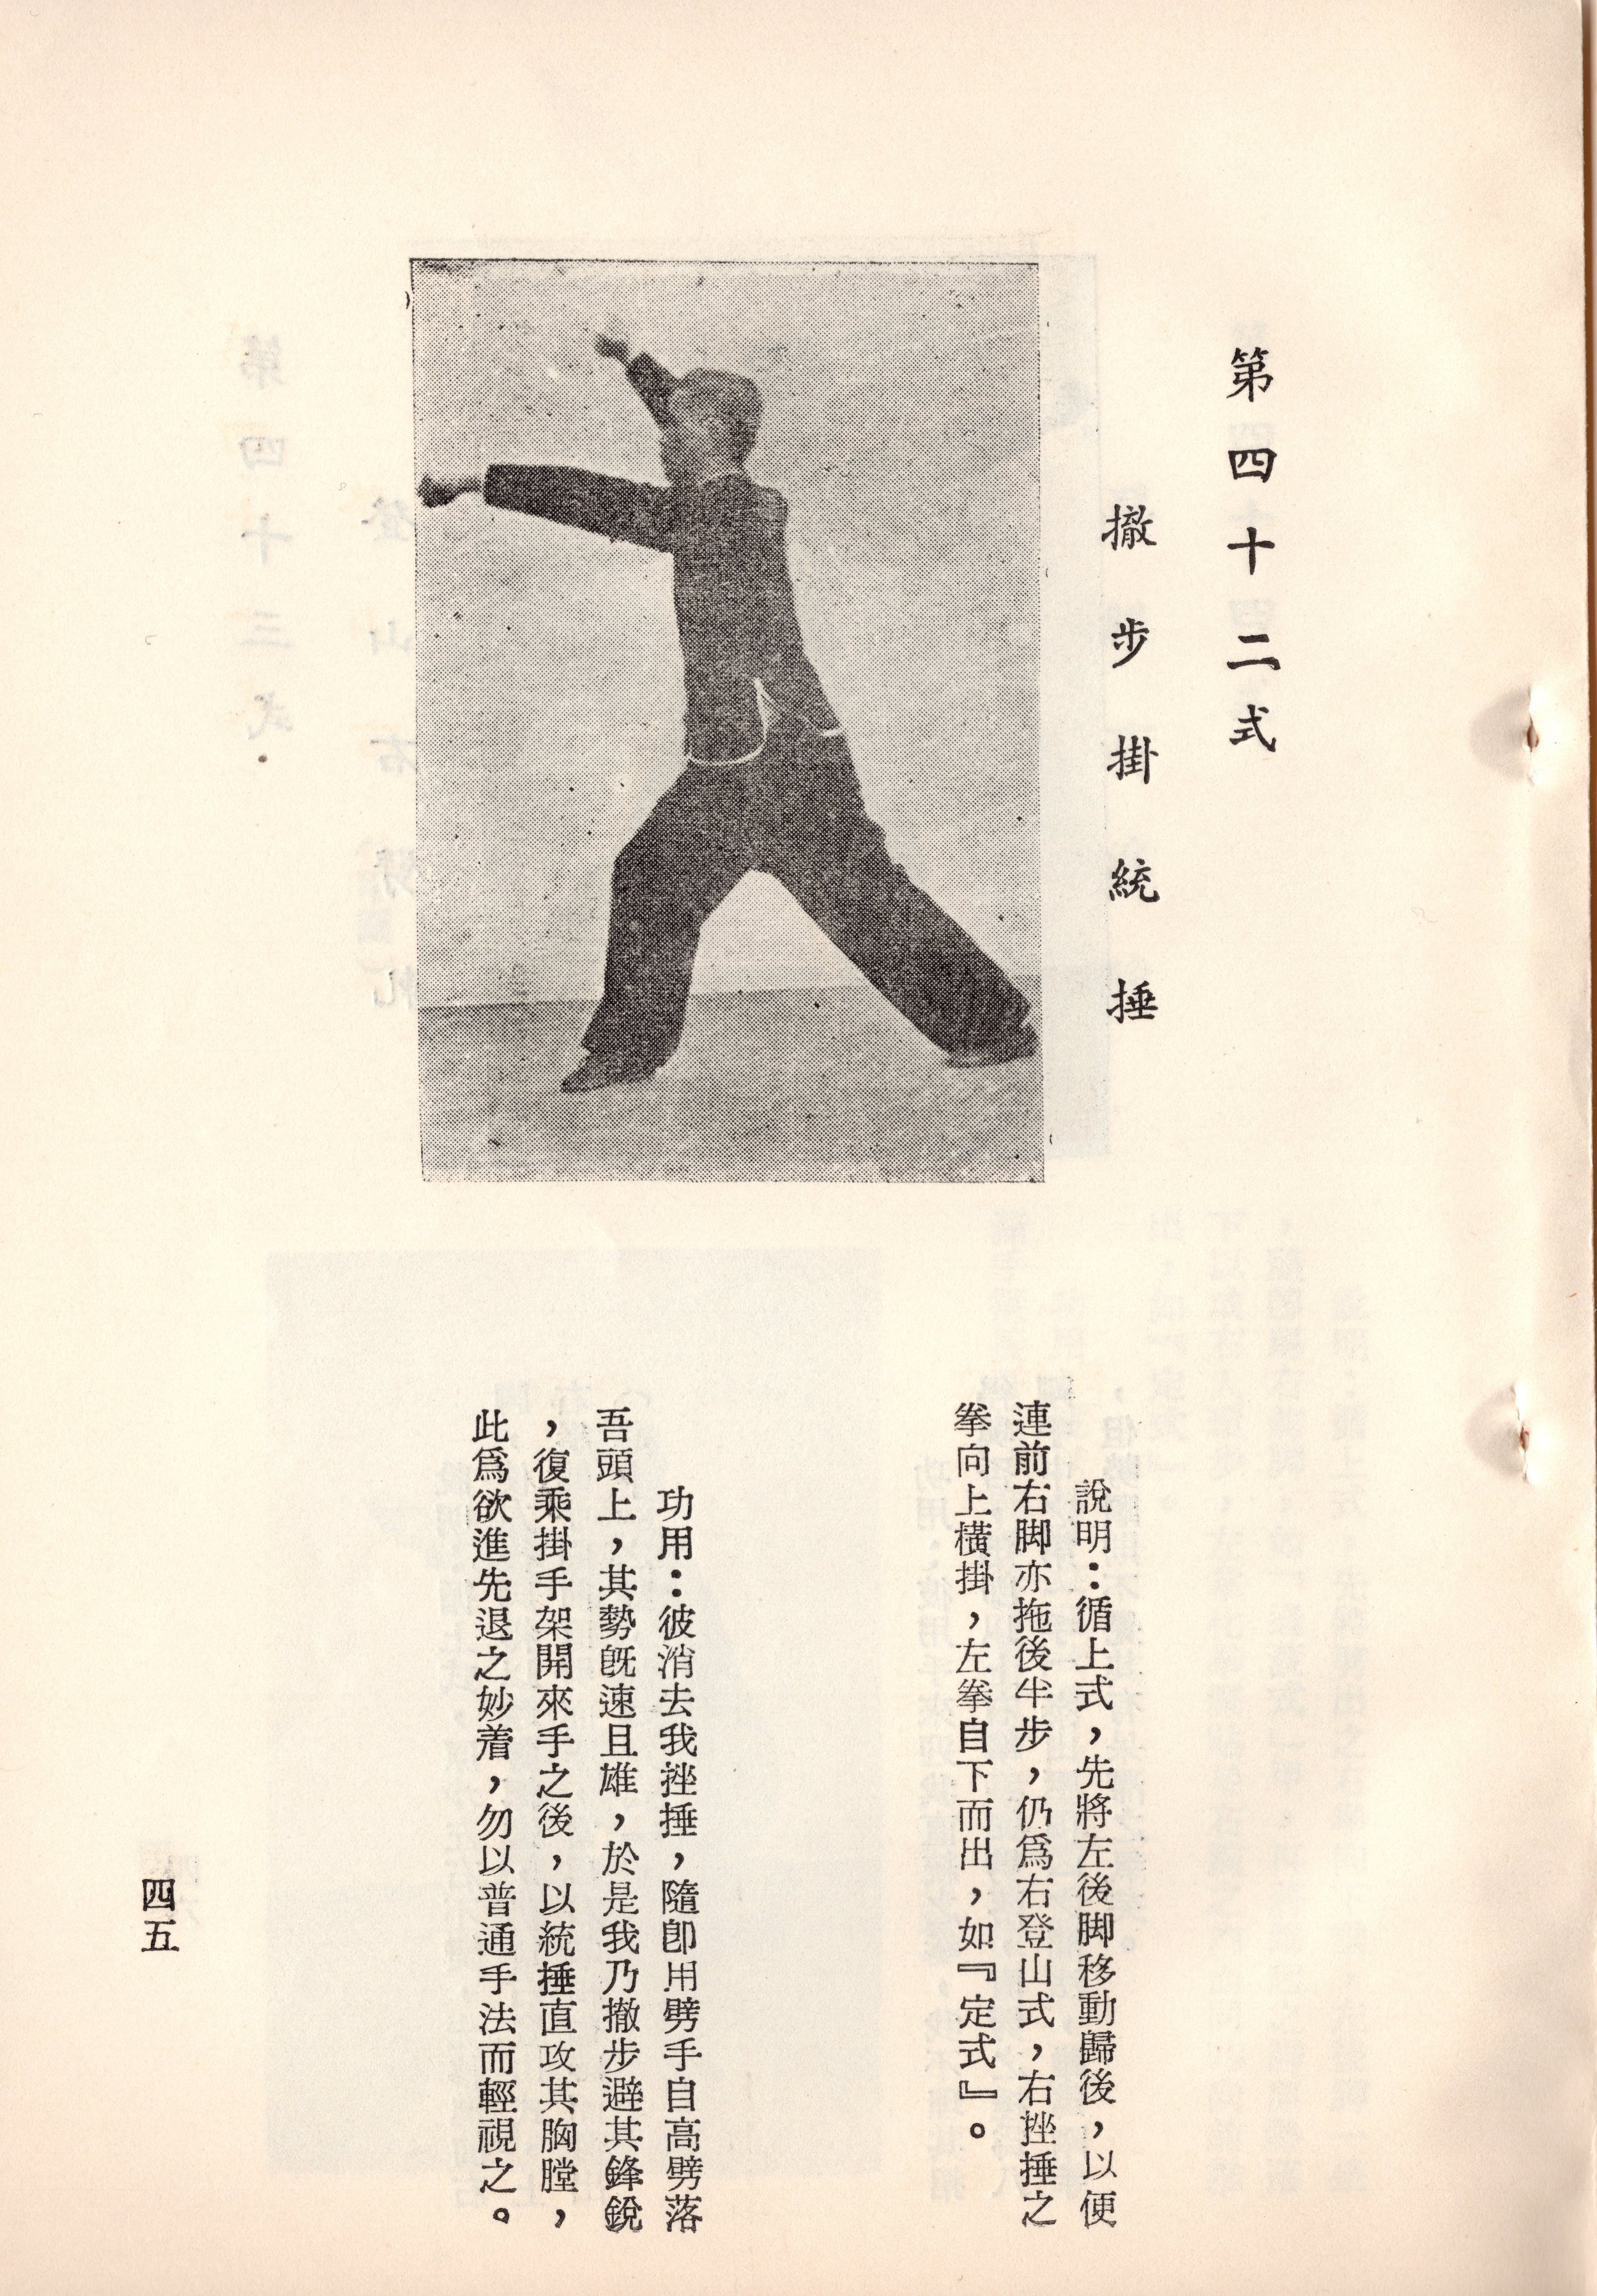 第四十二式
撤步掛統捶
說明：循上式，先將左後脚移動歸後，以便
連前右脚亦拖後半步，仍爲右登山式，右挫捶之
拳向上橫掛，左拳自下而出，如『定式』。
功用：彼消去我挫捶，隨卽用劈手自高劈落
吾頭上，其勢旣速且雄，於是我乃撤步避其鋒銳
，復乘掛手架開來手之後，以統捶直攻其胸膛，
此爲欲進先退之妙着，勿以普通手法而輕視之。
四五